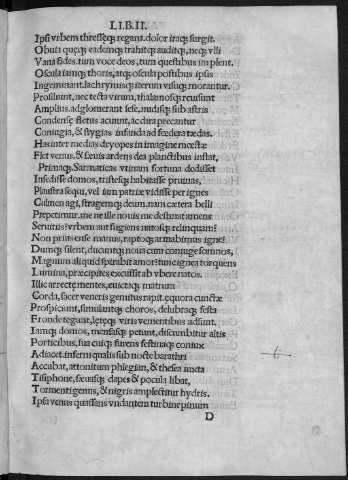 LIB.II.
Ipsi vrbem thressęq; regant. dolor iraq; surgit.
Obuia quęq; eademq; trahitq; auditq;, neq; vlli
Vana fides. tum voce deos, tum questibus implent.
Oscula iamq; thoris, atq; oscula postibus ipsis
Ingeminant. lachrymisq; iterum visuq; morantur.
Prosiliunt, nec tecta virum, thalamosq; reuisunt
Amplius. adglomerant sese, nudisq; sub astris
Condensę fletus acuunt, ac dira precantur
Coniugia, & stygias infanda ad fœdera tædas.
Has inter medias dryopes in imagine mœstæ
Flet venus. & sæuis ardens dea planctibus instat,
Primaq; Sarmaticas vtinam fortuna dedisset
Insedisse domos, tristesq; habitasse pruinas,
Plaustra sequi, vel iam patriæ vidisse per ignes
Culmen agi, stragemq; deum, nam cætera belli
Perpetimur. me ne ille nouis me destinat amens
Seruitiis? vrbem aut fugiens natosq; relinquam?
Non prius ense manus, raptoq; armabimus igne?
Dumq; silent, ducuntq; noua cum coniuge somnos,
Magnum aliquid spirabit amor? tunc ignea torquens
Lumina, præcipites excussit ab vbere natos.
Illic arrectę mentes, euictaq; matrum
Corda, sacer veneris gemitus rapit. ęquora cunctæ
Prospiciunt, simulantq; choros, delubraq; festa
Fronde tegunt, lętęq; viris venientibus adsunt.
Iamq; domos, mensasq; petunt, discumbitur altis
Porticibus, sua cuiq; furens festinaq; coniux
Adiacet. inferni qualis sub nocte barathri
Accubat, attonitum phlegiam, & thesea iuxta
Tisiphone, sæuasq; dapes & pocula libat,
Tormenti genus, & nigris amplectitur hydris.
Ipsa venus quassans vndantem turbine pinum
D